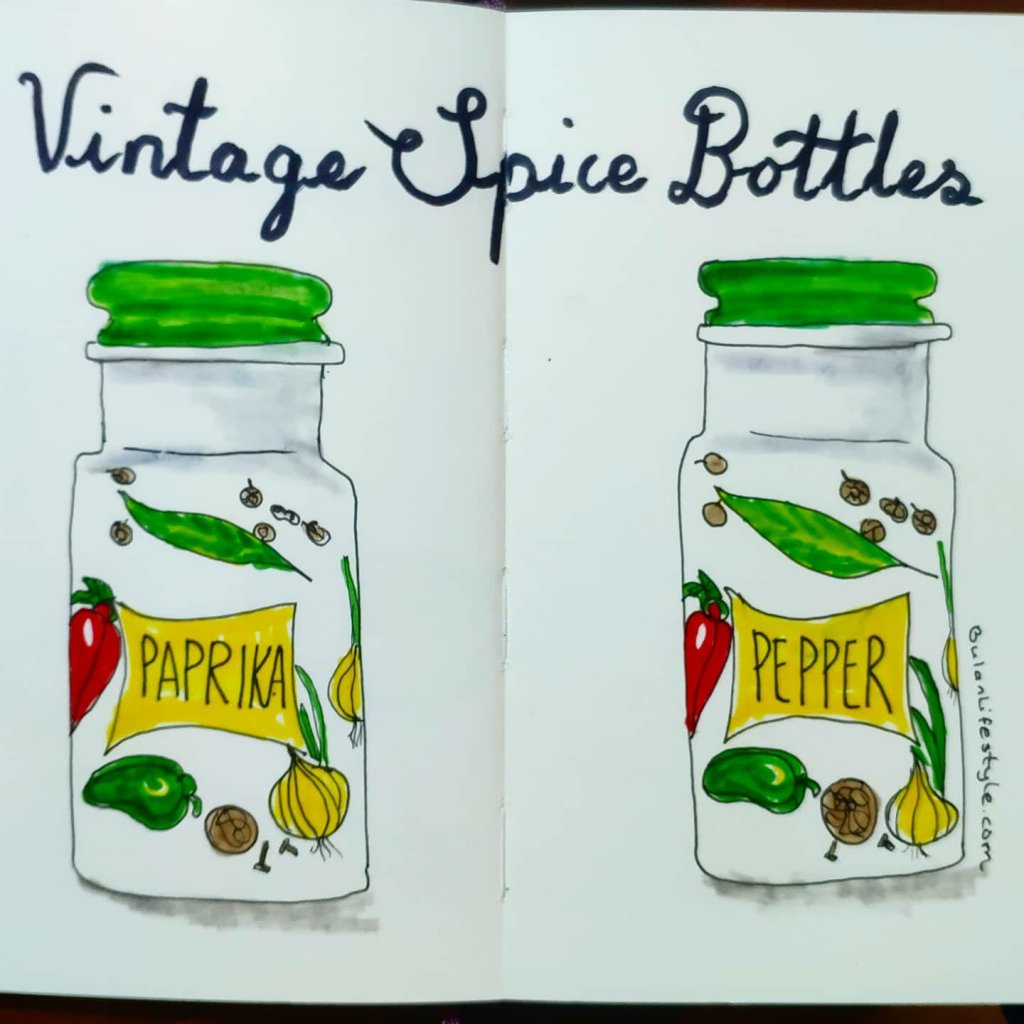 Vintage Spice Bottles
PAPRIKA
PEPPER
BulanLifestyle.com